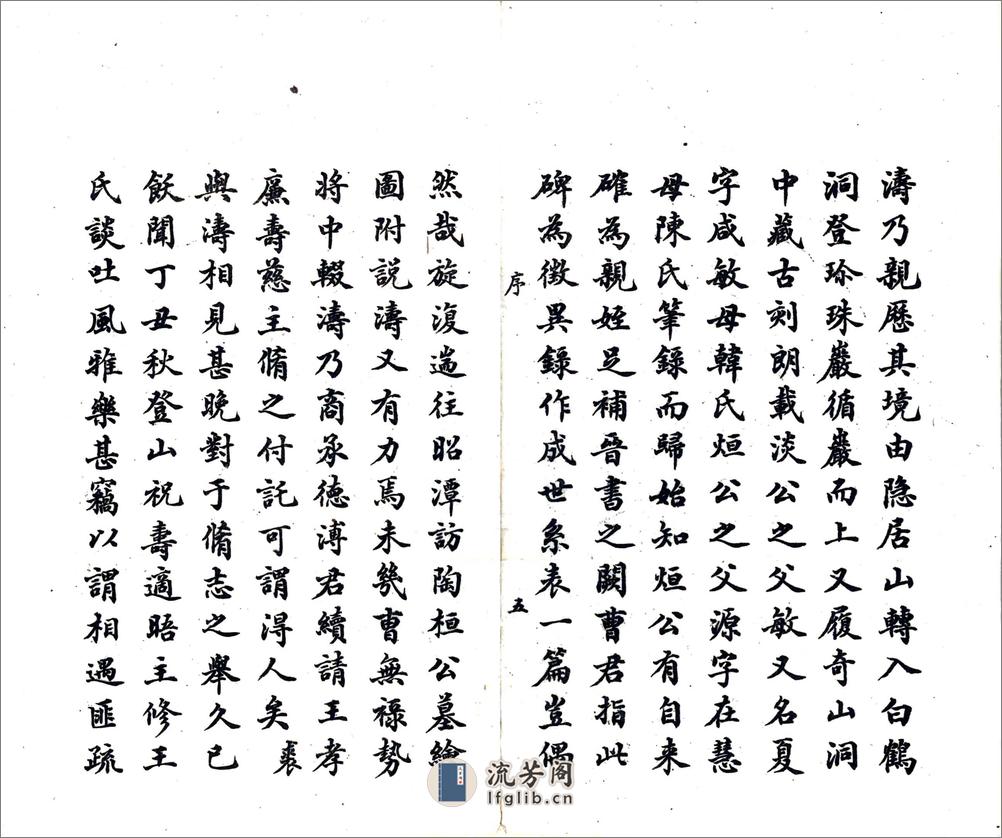 濤乃親歷其境由隐居山轉入白鶴
洞登珍珠巖循巖而上又履奇山洞
中藏古刻朗載淡公之父敏又名夏
字咸敏母韓氏烜公之父源字在慧
母陳氏筆錄而歸始知烜公有自来
確為親姪足補晉書之闕曹君指此
碑為徵異錄作成世系表一篇豈偶
序 五
然哉旋復遄往昭潭訪陶桓公墓繪
圖附説濤又有力焉未幾曹無祿勢
将中輟濤乃商承德溥君續請王孝
廉壽慈主脩之付託可謂得人矣裴
與濤相見甚晚對于脩志之舉久已
飫聞丁丑秋登山祝壽適晤主修王
氏談吐風雅樂甚竊以謂相遇匪疏
流芳阁
lfglib.cn